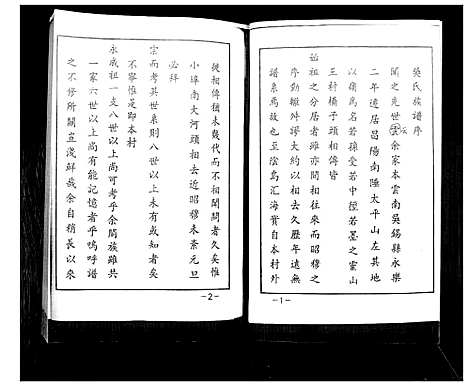 吳氏族譜序
聞之先世云余家本雲南吳錫縣永樂
二年遷居昌陽南陲太平山左其地
以嶺為名若孫受若中徑若墨之靈山
王村橋子頭相傳皆
始祖之分居者雖亦間相往來而昭穆之
序動輒舛謬大約以相去久歷年遠無
譜系焉故也至陰島匯海實自本村外
-1-
從相傳未幾代而不相聞問者久矣惟
小埠南大河頭相去近昭穆未紊元旦
必拜
宗而考其世系則八世以上未有或知者矣
不寧惟是即本村
永成祖一支八世以上尚可考乎余闔族雖共
一家六世以上尚有能記憶者乎嗚呼譜
之不修所關豈淺鮮哉余自稍長以來
-2-